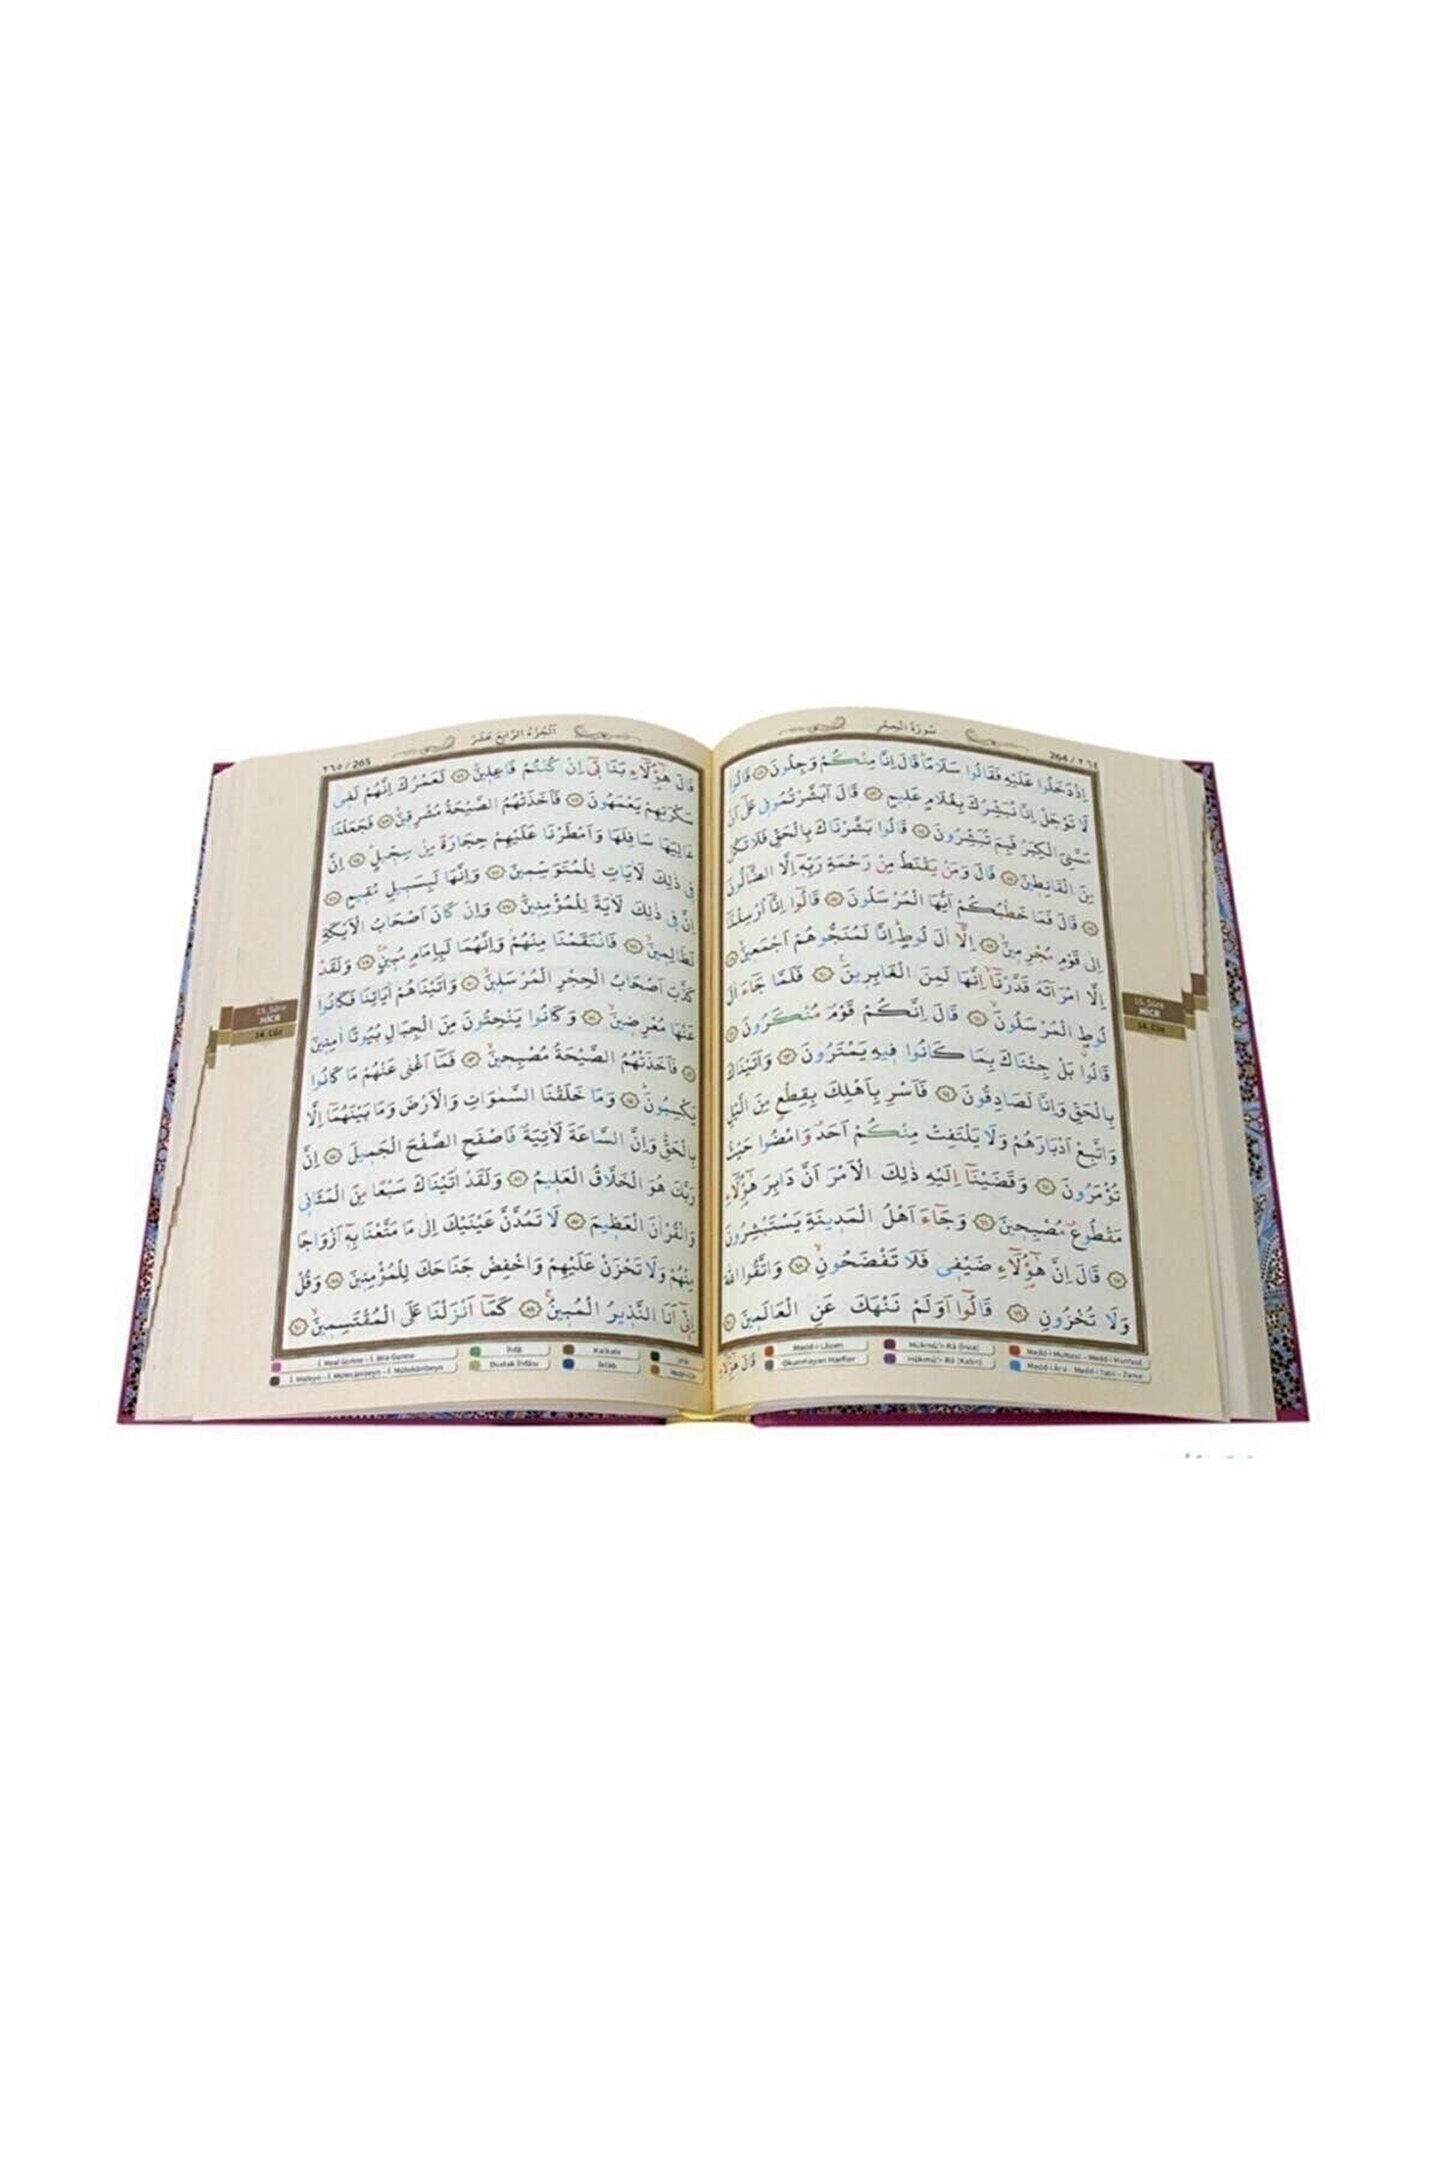 سُورَةُ الْحِجْرِ
264 / ٢٦٤
اِذْ دَخَلُوا عَلَيْهِ فَقَالُوا سَلَامًا قَالَ اِنَّا مِنْكُمْ وَجِلُونَ ﴿٥٢﴾ قَالُوا
لَا تَوْجَلْ اِنَّا نُبَشِّرُكَ بِغُلَامٍ عَلِيمٍ ﴿٥٣﴾ قَالَ اَبَشَّرْتُمُونِى عَلٰٓى اَنْ
مَسَّنِىَ الْكِبَرُ فَبِمَ تُبَشِّرُونَ ﴿٥٤﴾ قَالُوا بَشَّرْنَاكَ بِالْحَقِّ فَلَا تَكُنْ
مِنَ الْقَانِطِينَ ﴿٥٥﴾ قَالَ وَمَنْ يَقْنَطُ مِنْ رَحْمَةِ رَبِّهٖٓ اِلَّا الضَّٓالُّونَ
﴿٥٦﴾ قَالَ فَمَا خَطْبُكُمْ اَيُّهَا الْمُرْسَلُونَ ﴿٥٧﴾ قَالُٓوا اِنَّٓا اُرْسِلْنَٓا
اِلٰى قَوْمٍ مُجْرِمِينَ ﴿٥٨﴾ اِلَّٓا اٰلَ لُوطٍ اِنَّا لَمُنَجُّوهُمْ اَجْمَعِينَ ﴿٥٩﴾
اِلَّا امْرَاَتَهُ قَدَّرْنَٓا اِنَّهَا لَمِنَ الْغَابِرِينَ ﴿٦٠﴾ فَلَمَّا جَٓاءَ اٰلَ
لُوطٍ الْمُرْسَلُونَ ﴿٦١﴾ قَالَ اِنَّكُمْ قَوْمٌ مُنْكَرُونَ ﴿٦٢﴾
قَالُوا بَلْ جِئْنَاكَ بِمَا كَانُوا فِيهِ يَمْتَرُونَ ﴿٦٣﴾ وَاَتَيْنَاكَ
بِالْحَقِّ وَاِنَّا لَصَادِقُونَ ﴿٦٤﴾ فَاَسْرِ بِاَهْلِكَ بِقِطْعٍ مِنَ الَّيْلِ
وَاتَّبِعْ اَدْبَارَهُمْ وَلَا يَلْتَفِتْ مِنْكُمْ اَحَدٌ وَامْضُوا حَيْثُ
تُؤْمَرُونَ ﴿٦٥﴾ وَقَضَيْنَٓا اِلَيْهِ ذٰلِكَ الْاَمْرَ اَنَّ دَابِرَ هٰٓؤُ۬لَٓاءِ
مَقْطُوعٌ مُصْبِحِينَ ﴿٦٦﴾ وَجَٓاءَ اَهْلُ الْمَدِينَةِ يَسْتَبْشِرُونَ
﴿٦٧﴾ قَالَ اِنَّ هٰٓؤُ۬لَٓاءِ ضَيْفِى فَلَا تَفْضَحُونِ ﴿٦٨﴾ وَاتَّقُوا اللّٰهَ
وَلَا تُخْزُونِ ﴿٦٩﴾ قَالُٓوا اَوَلَمْ نَنْهَكَ عَنِ الْعَالَمِينَ ﴿٧٠﴾
قَالَ هٰٓؤُ۬لَٓاءِ
Medd-i Lâzım
Hükmü'r-Râ (İnce)
Medd-i Muttasıl - Medd-i Munfasıl
Okunmayan Harfler
Hükmü'r-Râ (Kalın)
Medd-i Ârız - Medd-i Tabiî - Zamir
15. Sûre
HİCR
14. Cüz
اَلْجُزْءُ الرَّابِعَ عَشَرَ
٢٦٥ / 265
قَالَ هٰٓؤُ۬لَٓاءِ بَنَاتِٓى اِنْ كُنْتُمْ فَاعِلِينَ ﴿٧١﴾ لَعَمْرُكَ اِنَّهُمْ لَفِى
سَكْرَتِهِمْ يَعْمَهُونَ ﴿٧٢﴾ فَاَخَذَتْهُمُ الصَّيْحَةُ مُشْرِقِينَ ﴿٧٣﴾ فَجَعَلْنَا
عَالِيَهَا سَافِلَهَا وَاَمْطَرْنَا عَلَيْهِمْ حِجَارَةً مِنْ سِجِّيلٍ ﴿٧٤﴾ اِنَّ
فِى ذٰلِكَ لَاٰيَاتٍ لِلْمُتَوَسِّمِينَ ﴿٧٥﴾ وَاِنَّهَا لَبِسَبِيلٍ مُقِيمٍ ﴿٧٦﴾
اِنَّ فِى ذٰلِكَ لَاٰيَةً لِلْمُؤْمِنِينَ ﴿٧٧﴾ وَاِنْ كَانَ اَصْحَابُ الْاَيْكَةِ
لَظَالِمِينَ ﴿٧٨﴾ فَانْتَقَمْنَا مِنْهُمْ وَاِنَّهُمَا لَبِاِمَامٍ مُبِينٍ ﴿٧٩﴾ وَلَقَدْ
كَذَّبَ اَصْحَابُ الْحِجْرِ الْمُرْسَلِينَ ﴿٨٠﴾ وَاٰتَيْنَاهُمْ اٰيَاتِنَا فَكَانُوا
عَنْهَا مُعْرِضِينَ ﴿٨١﴾ وَكَانُوا يَنْحِتُونَ مِنَ الْجِبَالِ بُيُوتًا اٰمِنِينَ
﴿٨٢﴾ فَاَخَذَتْهُمُ الصَّيْحَةُ مُصْبِحِينَ ﴿٨٣﴾ فَمَٓا اَغْنٰى عَنْهُمْ مَا كَانُوا
يَكْسِبُونَ ﴿٨٤﴾ وَمَا خَلَقْنَا السَّمٰوَاتِ وَالْاَرْضَ وَمَا بَيْنَهُمَٓا اِلَّا
بِالْحَقِّ وَاِنَّ السَّاعَةَ لَاٰتِيَةٌ فَاصْفَحِ الصَّفْحَ الْجَمِيلَ ﴿٨٥﴾ اِنَّ
رَبَّكَ هُوَ الْخَلَّاقُ الْعَلِيمُ ﴿٨٦﴾ وَلَقَدْ اٰتَيْنَاكَ سَبْعًا مِنَ الْمَثَانِى
وَالْقُرْاٰنَ الْعَظِيمَ ﴿٨٧﴾ لَا تَمُدَّنَّ عَيْنَيْكَ اِلٰى مَا مَتَّعْنَا بِهٖٓ اَزْوَاجًا
مِنْهُمْ وَلَا تَحْزَنْ عَلَيْهِمْ وَاخْفِضْ جَنَاحَكَ لِلْمُؤْمِنِينَ ﴿٨٨﴾ وَقُلْ
اِنِّٓى اَنَا النَّذِيرُ الْمُبِينُ ﴿٨٩﴾ كَمَٓا اَنْزَلْنَا عَلَى الْمُقْتَسِمِينَ ﴿٩٠﴾
İhfâ
Kalkale
Dudak İhfâsı
İklâb
15. Sûre
HİCR
14. Cüz